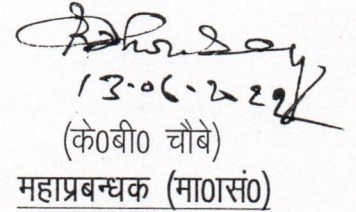 13.06.2022
(के0बी0 चौबे)
महाप्रबन्धक (मा0सं0)